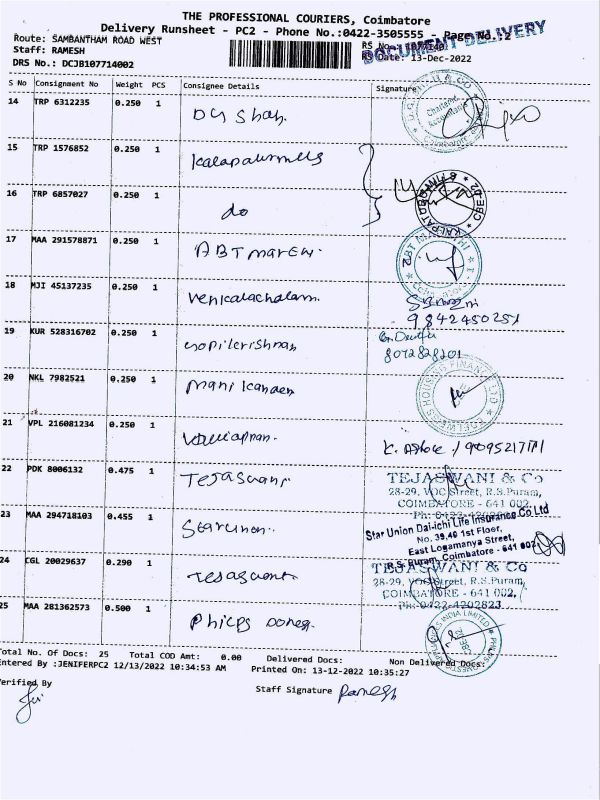 THE PROFESSIONAL COURIERS, Coimbatore
Delivery Runsheet - PC2 - Phone No.:0422-3505555 - Page No.:2
DOCUMENT DELIVERY
Route: SAMBANTHAM ROAD WEST
Staff: RAMESH
RS Date: 13-Dec-2022
DRS No.: DCJB107714002
S No Consignment No Weight PCS Consignee Details Signature
14 TRP 6312235 0.250 1 D G Shah.
15 TRP 1576852 0.250 1
16 TRP 6857027 0.250 1 do
17 MAA 291578871 0.250 1 ABT
18 MJI 45137235 0.250 1 Venkatachalam.
9842450251
19 KUR 528316702 0.250 1 Gopikrishnan
8072828201
20 NKL 7982521 0.250 1 Manikanden
EDELWEISS HOUSING FINANCE LTD
21 VPL 216081234 0.250 1
K. Ashok / 9095217171
22 PDK 8006132 0.475 1 Tejaswani
TEJASWANI & Co
28-29, VOC Street, R.S.Puram,
COIMBATORE - 641 002.
Ph: 0422-4202823
23 MAA 294718103 0.455 1 Starunion.
Star Union Dai-ichi Life Insurance Co Ltd
No. 39,40 1st Floor,
East Logamanya Street,
R.S. Puram, Coimbatore - 641 002
24 CGL 20029637 0.290 1 Tejaswani
TEJASWANI & Co
28-29, VOC Street, R.S.Puram,
COIMBATORE - 641 002,
Ph:0422-4202823
25 MAA 281362573 0.500 1 Philips Domes.
Total No. Of Docs: 25 Total COD Amt: 0.00 Delivered Docs: Non Delivered Docs:
Entered By :JENIFERPC2 12/13/2022 10:34:53 AM Printed On: 13-12-2022 10:35:27
Verified By
Staff Signature Ramesh